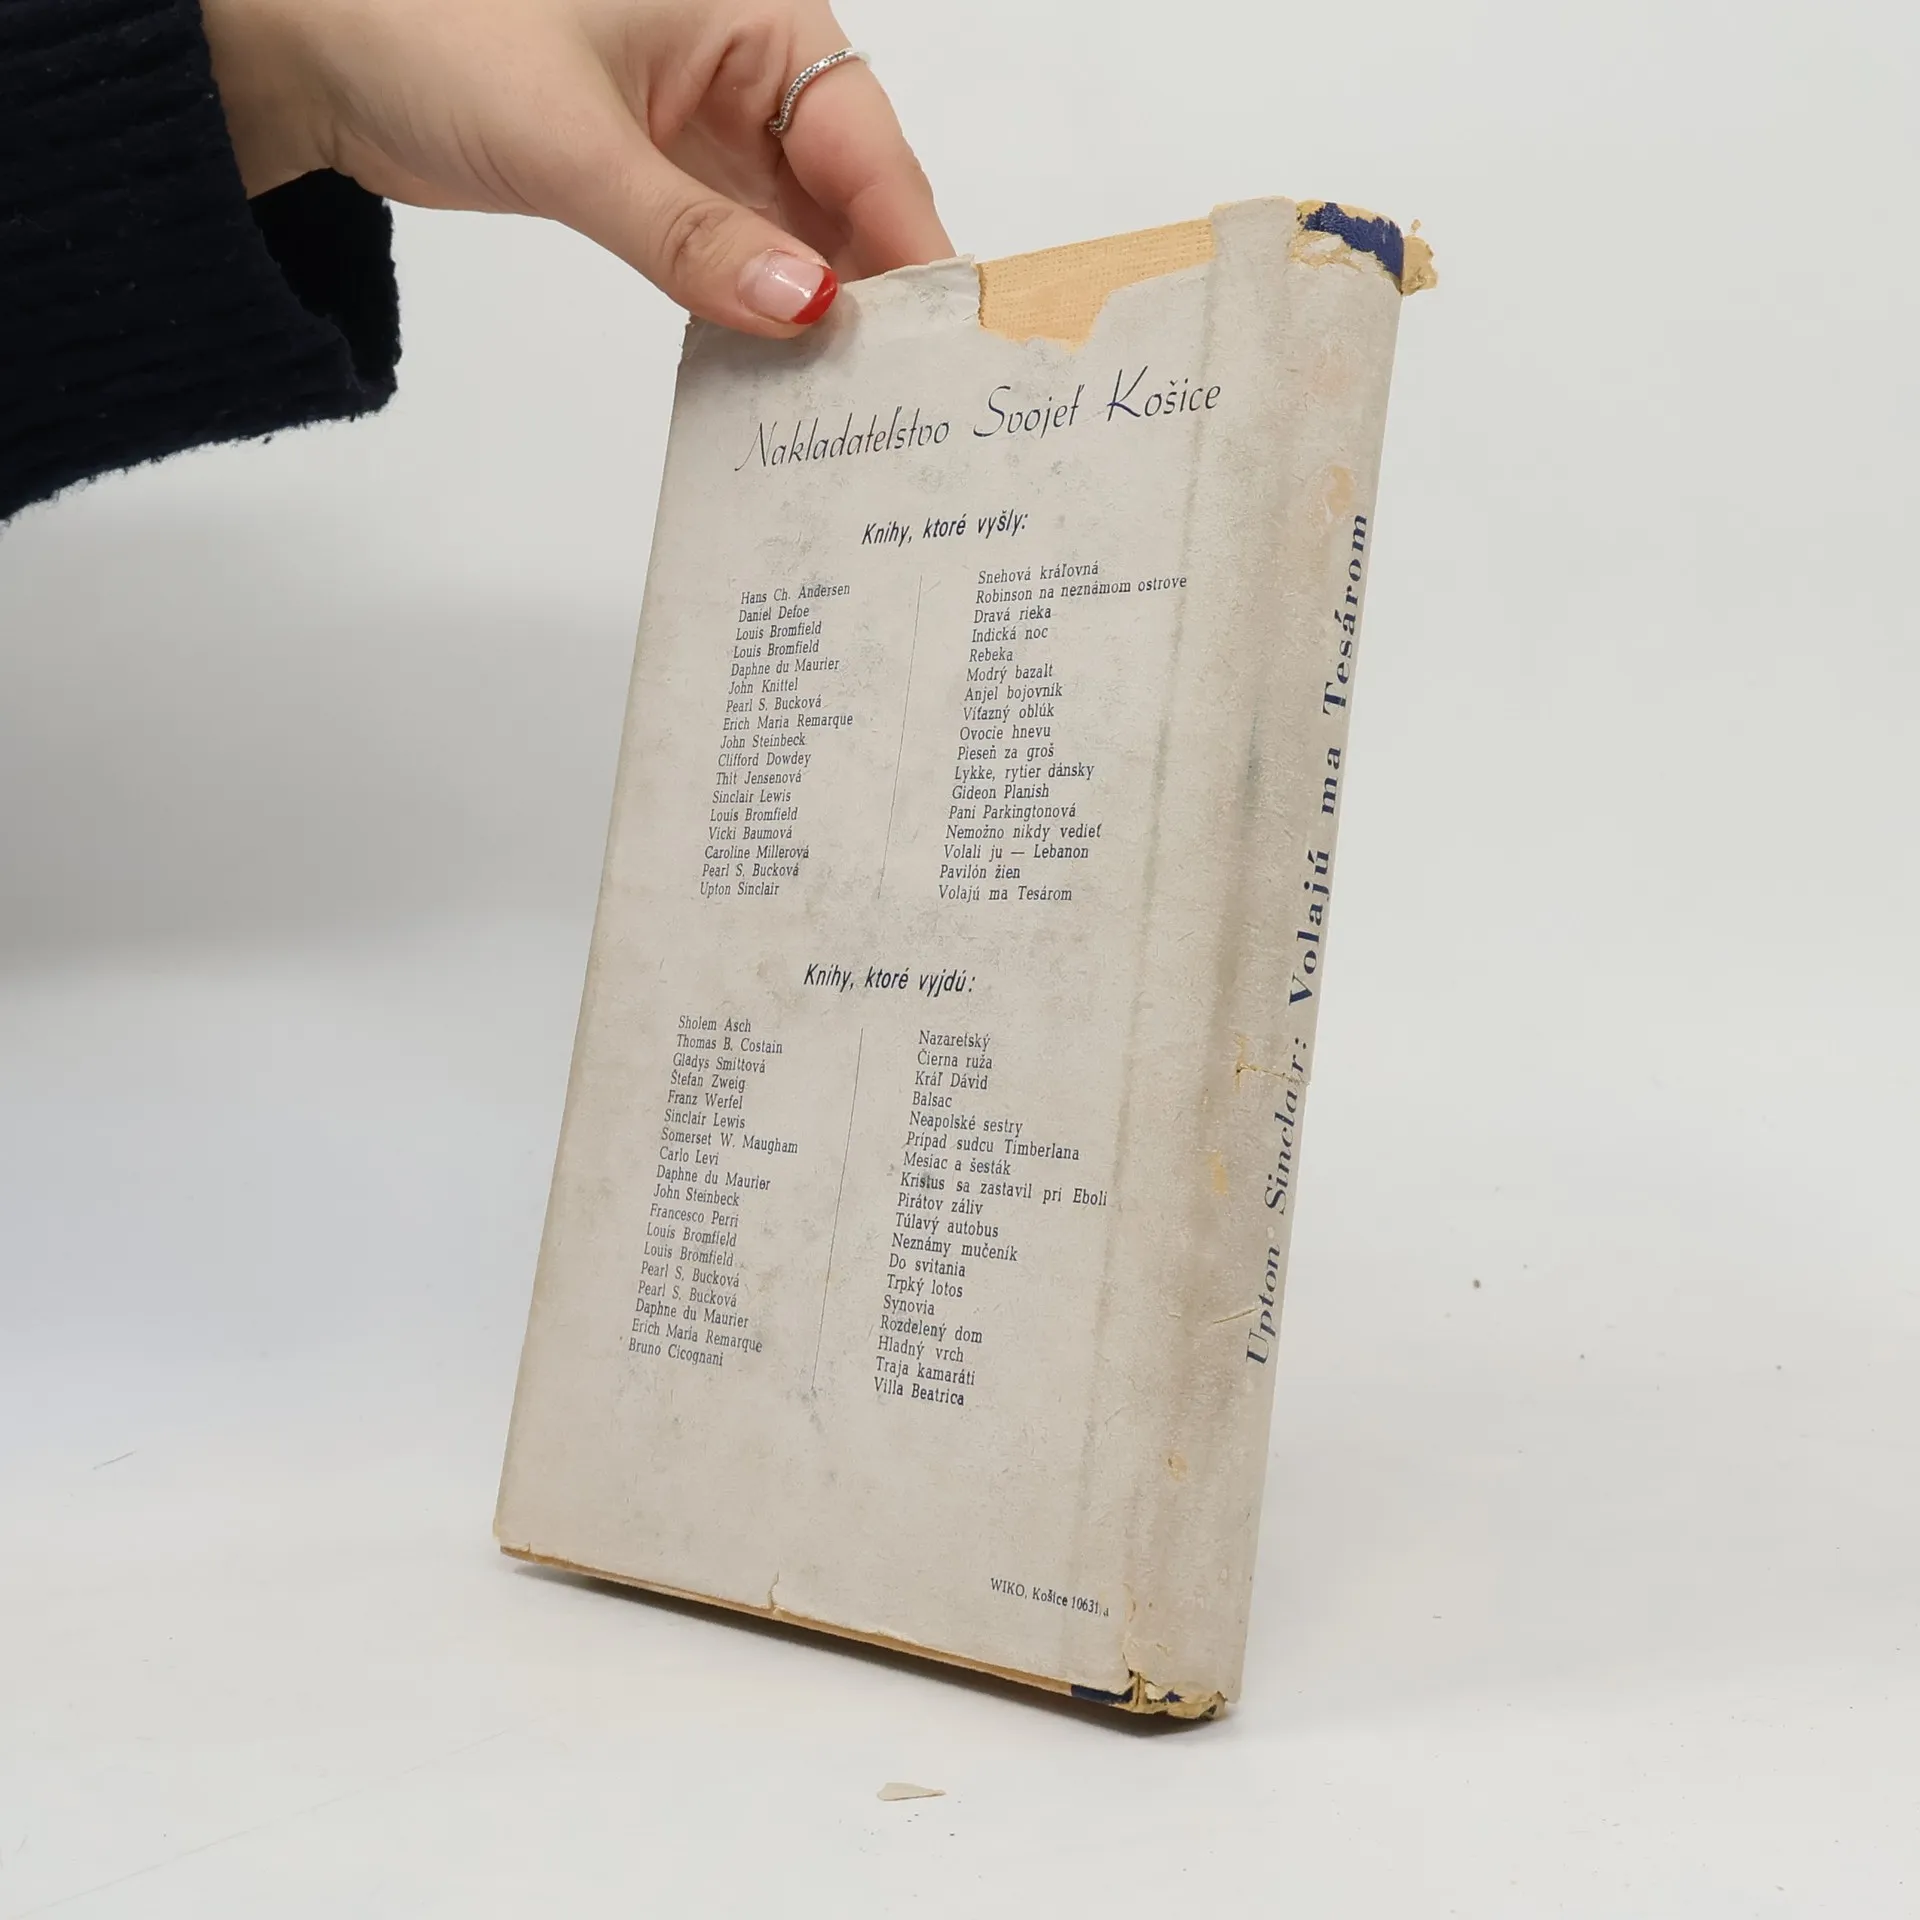 Nakladateľstvo Svojeť Košice
Knihy, ktoré vyšly:
Hans Ch. Andersen Snehová kráľovná
Daniel Defoe Robinson na neznámom ostrove
Louis Bromfield Dravá rieka
Louis Bromfield Indická noc
Daphne du Maurier Rebeka
John Knittel Modrý bazalt
Pearl S. Bucková Anjel bojovník
Erich Maria Remarque Víťazný oblúk
John Steinbeck Ovocie hnevu
Clifford Dowdey Pieseň za groš
Thit Jensenová Lykke, rytier dánsky
Sinclair Lewis Gideon Planish
Louis Bromfield Pani Parkingtonová
Vicki Baumová Nemožno nikdy vedieť
Caroline Millerová Volali ju — Lebanon
Pearl S. Bucková Pavilón žien
Upton Sinclair Volajú ma Tesárom
Knihy, ktoré vyjdú:
Sholem Asch Nazaretský
Thomas B. Costain Čierna ruža
Gladys Smittová Kráľ Dávid
Štefan Zweig Balsac
Franz Werfel Neapolské sestry
Sinclair Lewis Prípad sudcu Timberlana
Somerset W. Maugham Mesiac a šesták
Carlo Levi Kristus sa zastavil pri Eboli
Daphne du Maurier Pirátov záliv
John Steinbeck Túlavý autobus
Francesco Perri Neznámy mučeník
Louis Bromfield Do svitania
Louis Bromfield Trpký lotos
Pearl S. Bucková Synovia
Pearl S. Bucková Rozdelený dom
Daphne du Maurier Hladný vrch
Erich Maria Remarque Traja kamaráti
Bruno Cicognani Villa Beatrica
WIKO, Košice 10631
Upton Sinclair: Volajú ma Tesárom